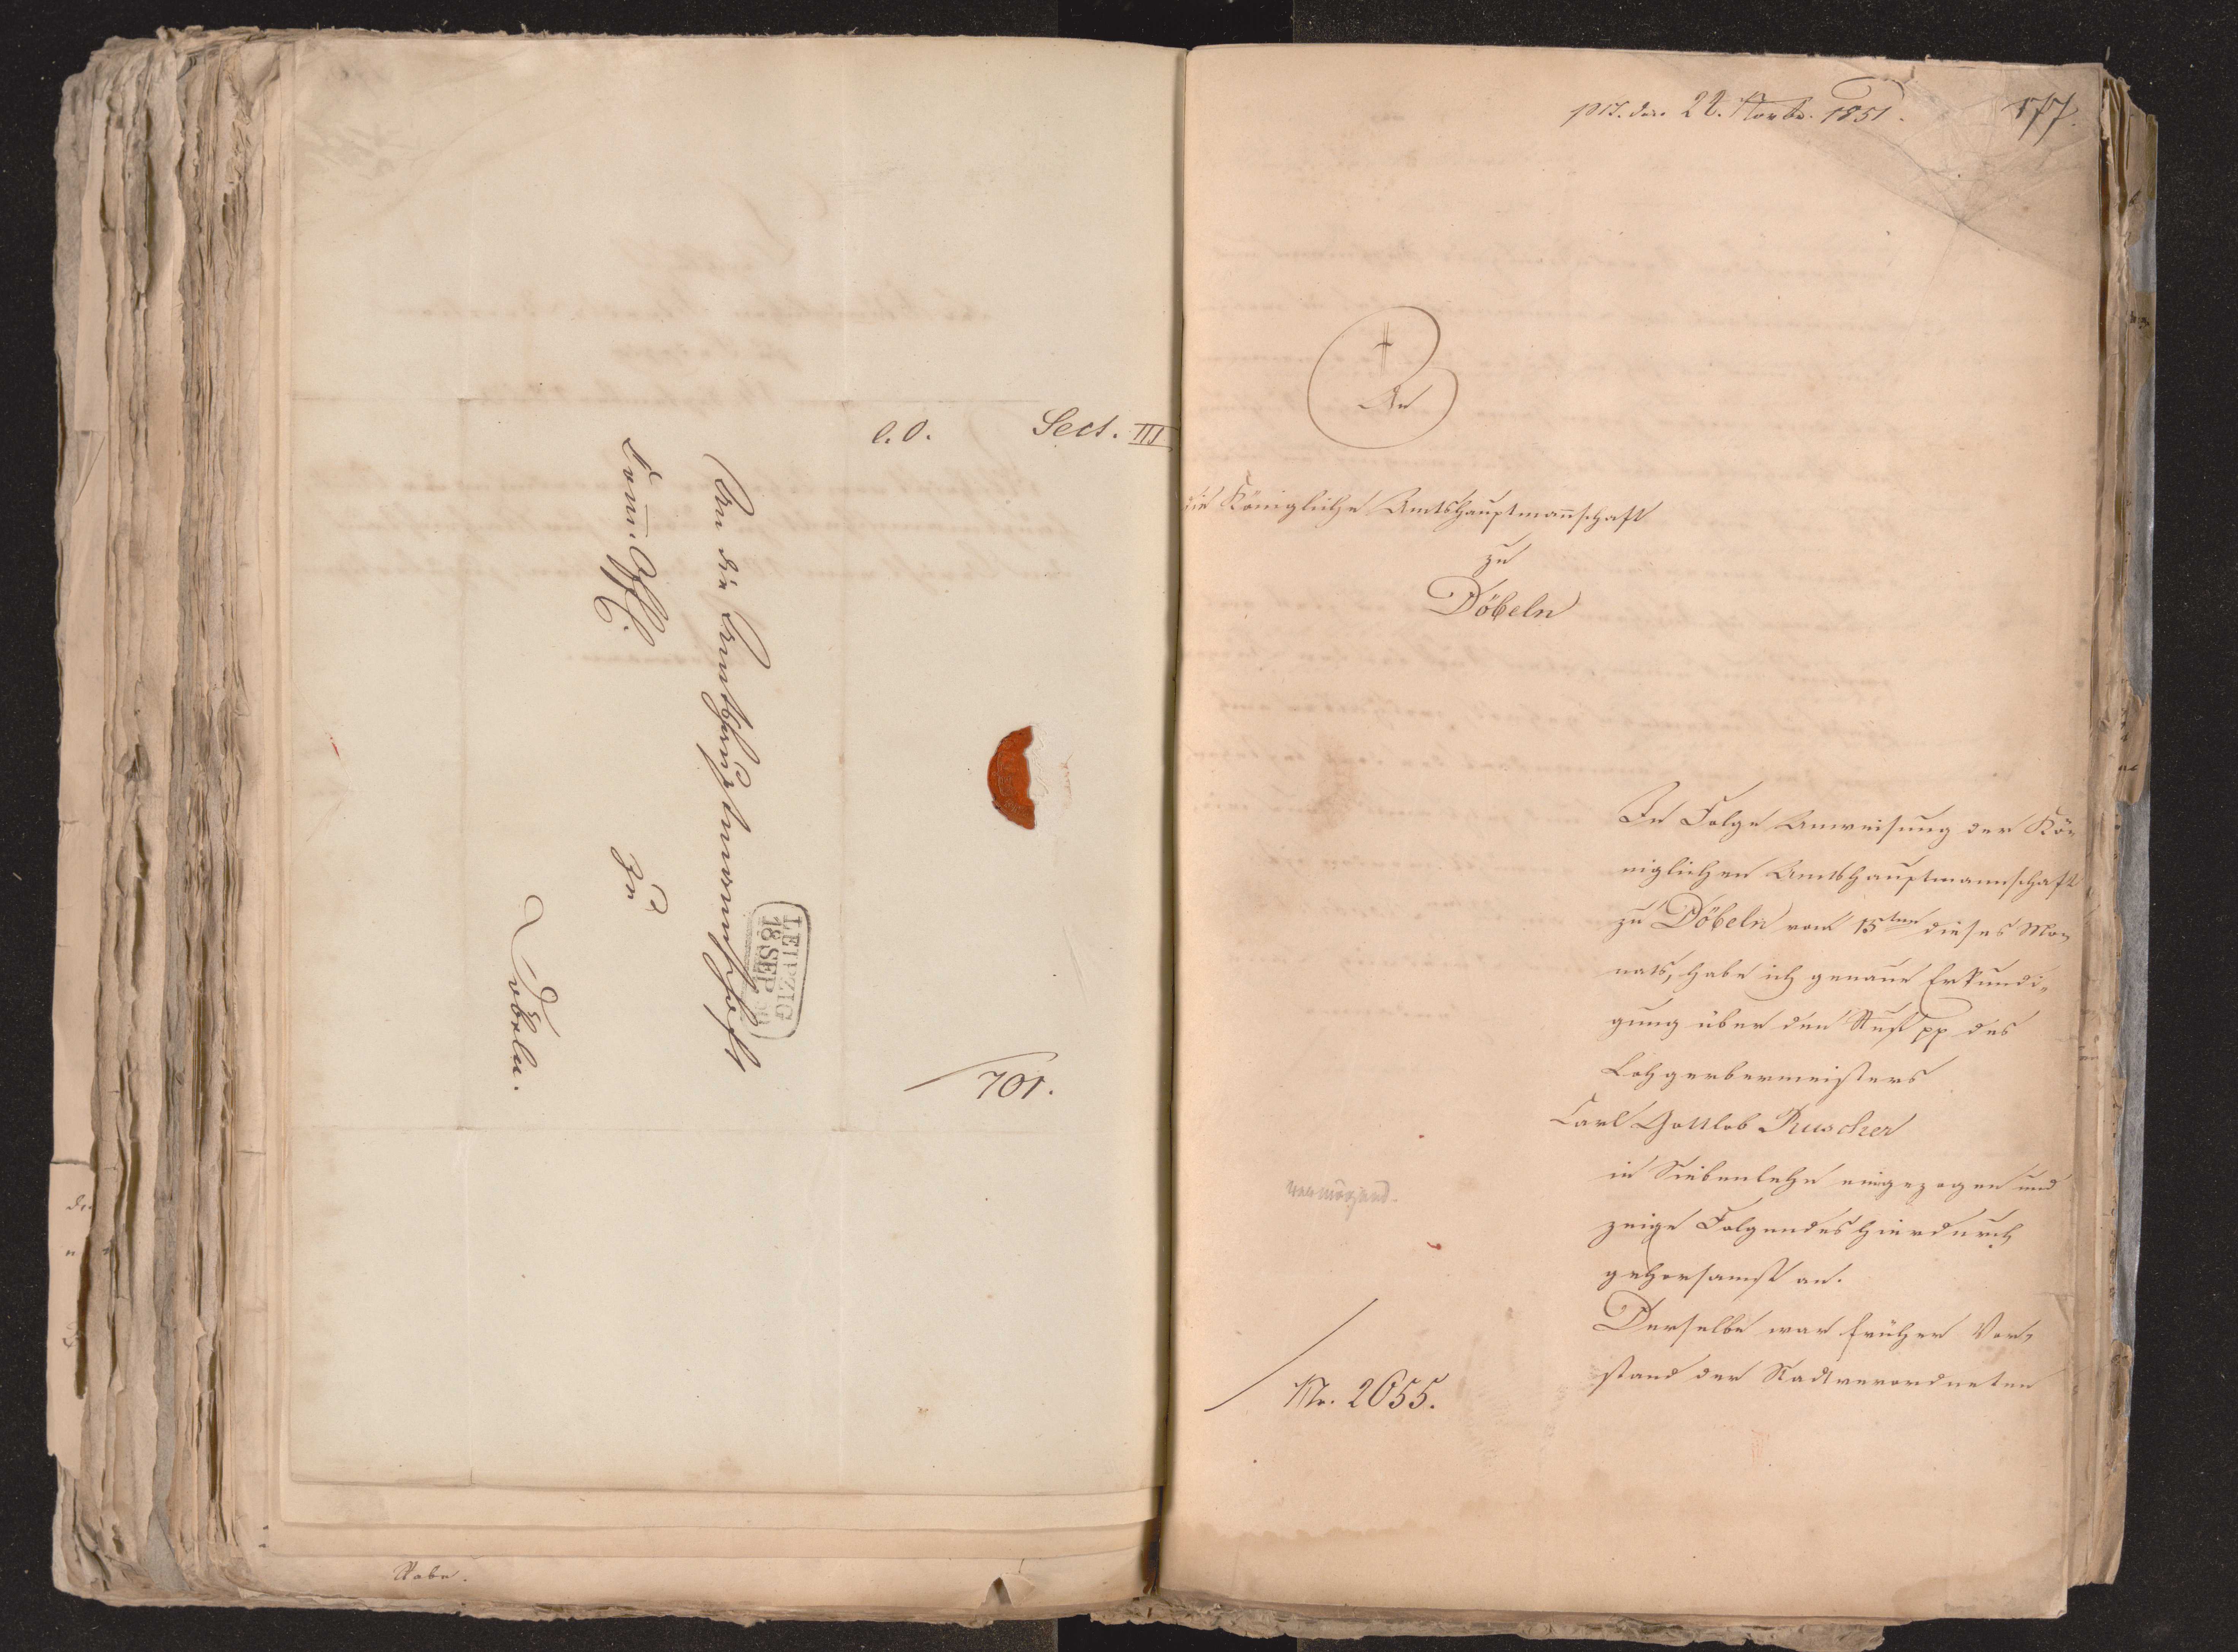 e.o. Sect. III
An die Amtshauptmannschaft
zu
Döbeln.
LEIPZIG
18 SEP
701.
Rabe.
den 22. Novbr. 1851.
177.
An
die Königliche Amtshauptmannschaft
zu
Döbeln
In Folge Anweisung der Kö-
niglichen Amtshauptmannschaft
zu Döbeln vom 15ten dieses Mo-
nats, habe ich genaue Erkundi-
gung über den Ruf pp des
Lohgerbermeisters
Carl Gottlob Ruscher
in Siebenlehn eingezogen und
zeige Folgendes hierdurch
gehorsamst an.
Derselbe war früher Vor-
stand der Stadtverordneten
Nr. 2055.